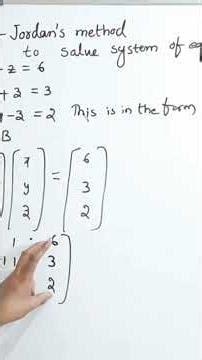 - Jordan's method
to salve system of eq
- z = 6
+ z = 3
- z = 2 This is in the form
B
x
y = 6
z 3
2
1 : 6
1 1 3
2